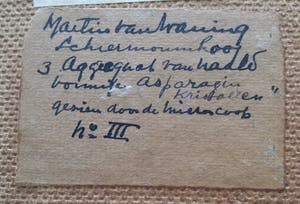 Martin van Waning
Schiermonnikoog
3 Aggregaat van naald
vormite Asparagin
Kristallen"
gezien door de microscoop
No III